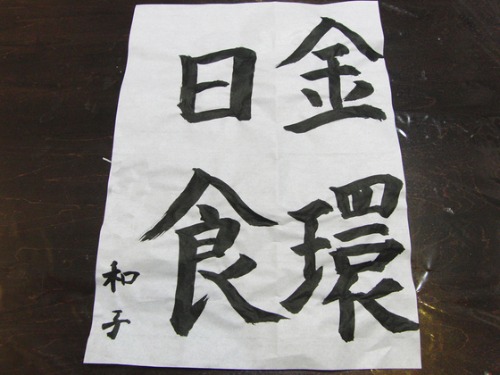 金環
日食
和子